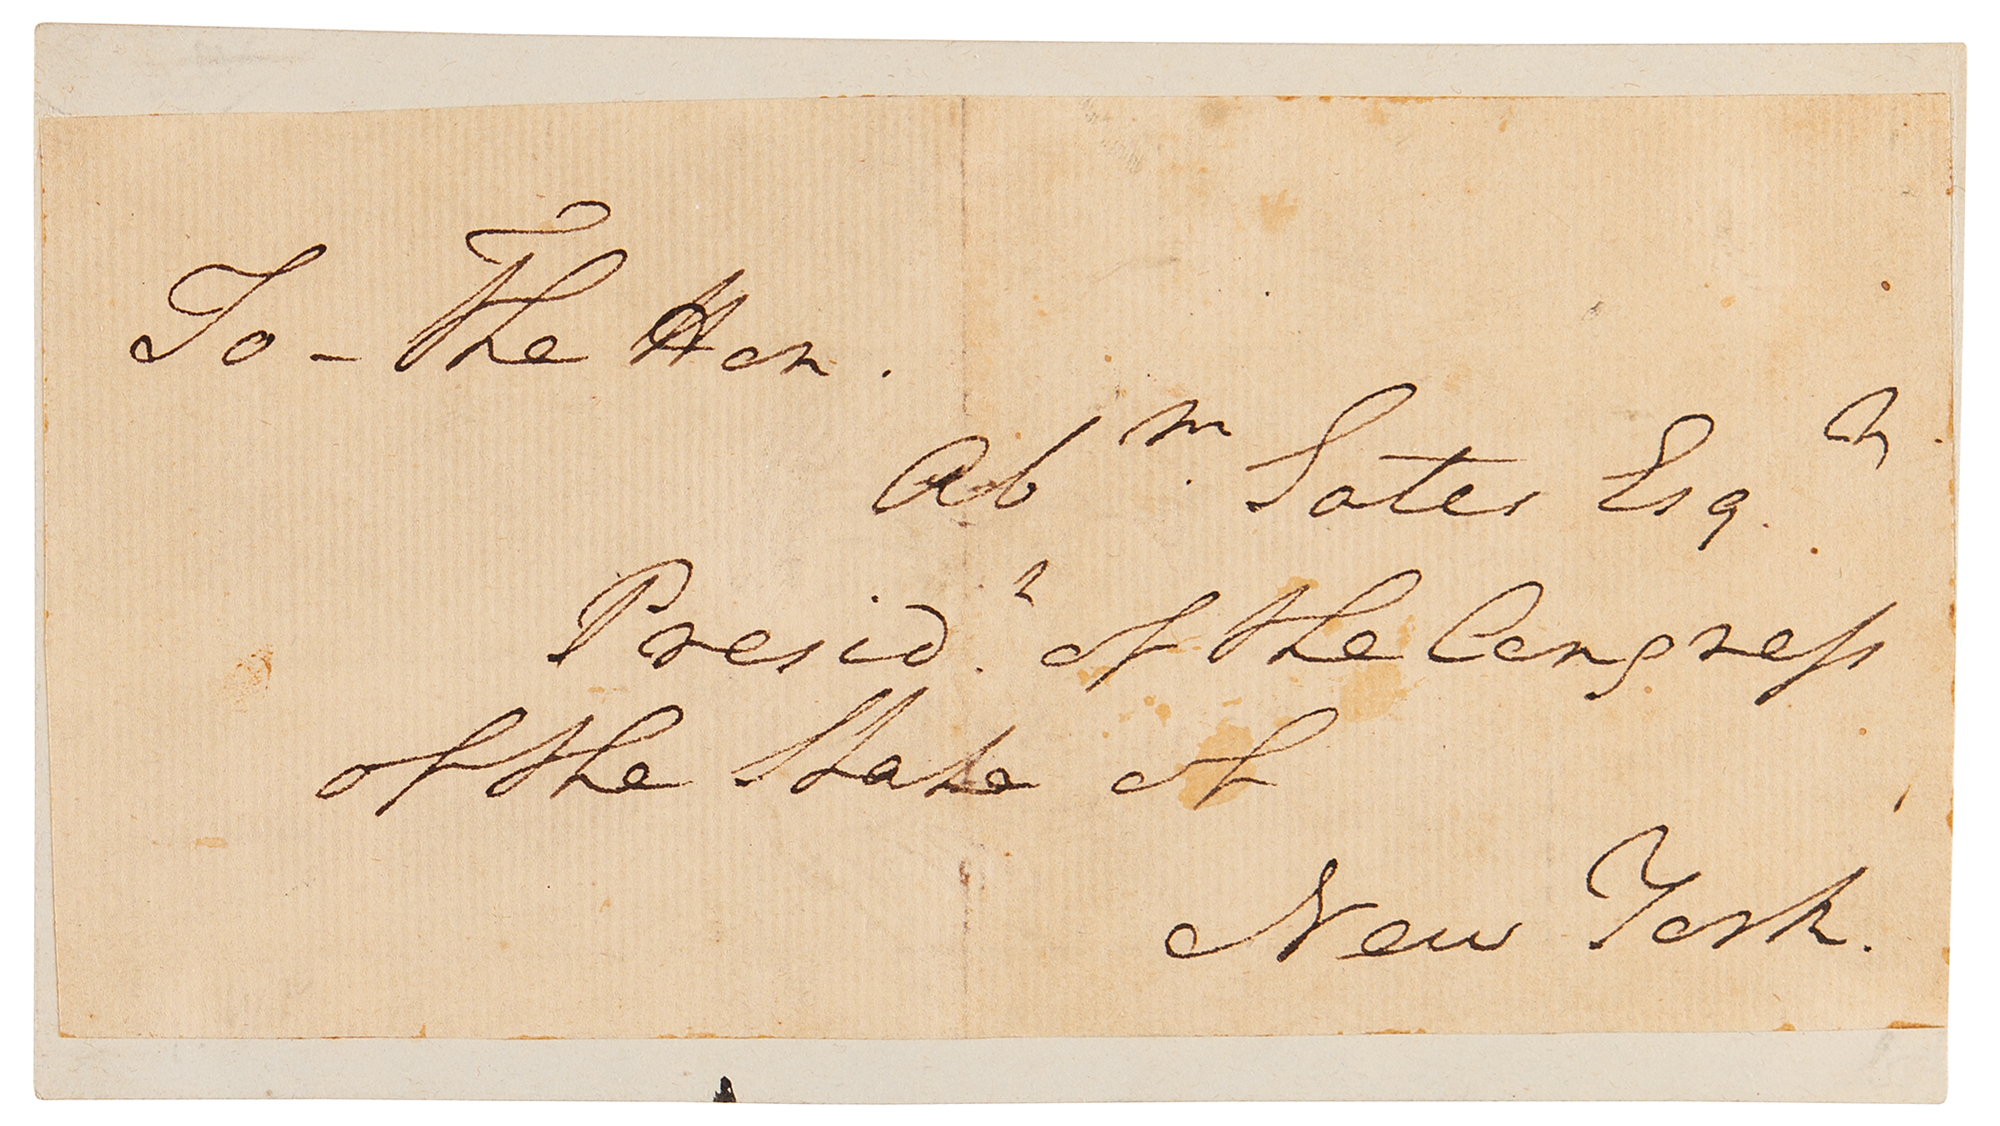 To - The Hon.
Abm. Yates Esqr.
Presidt. of the Congress
of the State of
New York.